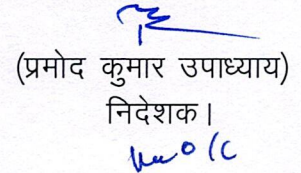 (प्रमोद कुमार उपाध्याय)
निदेशक।